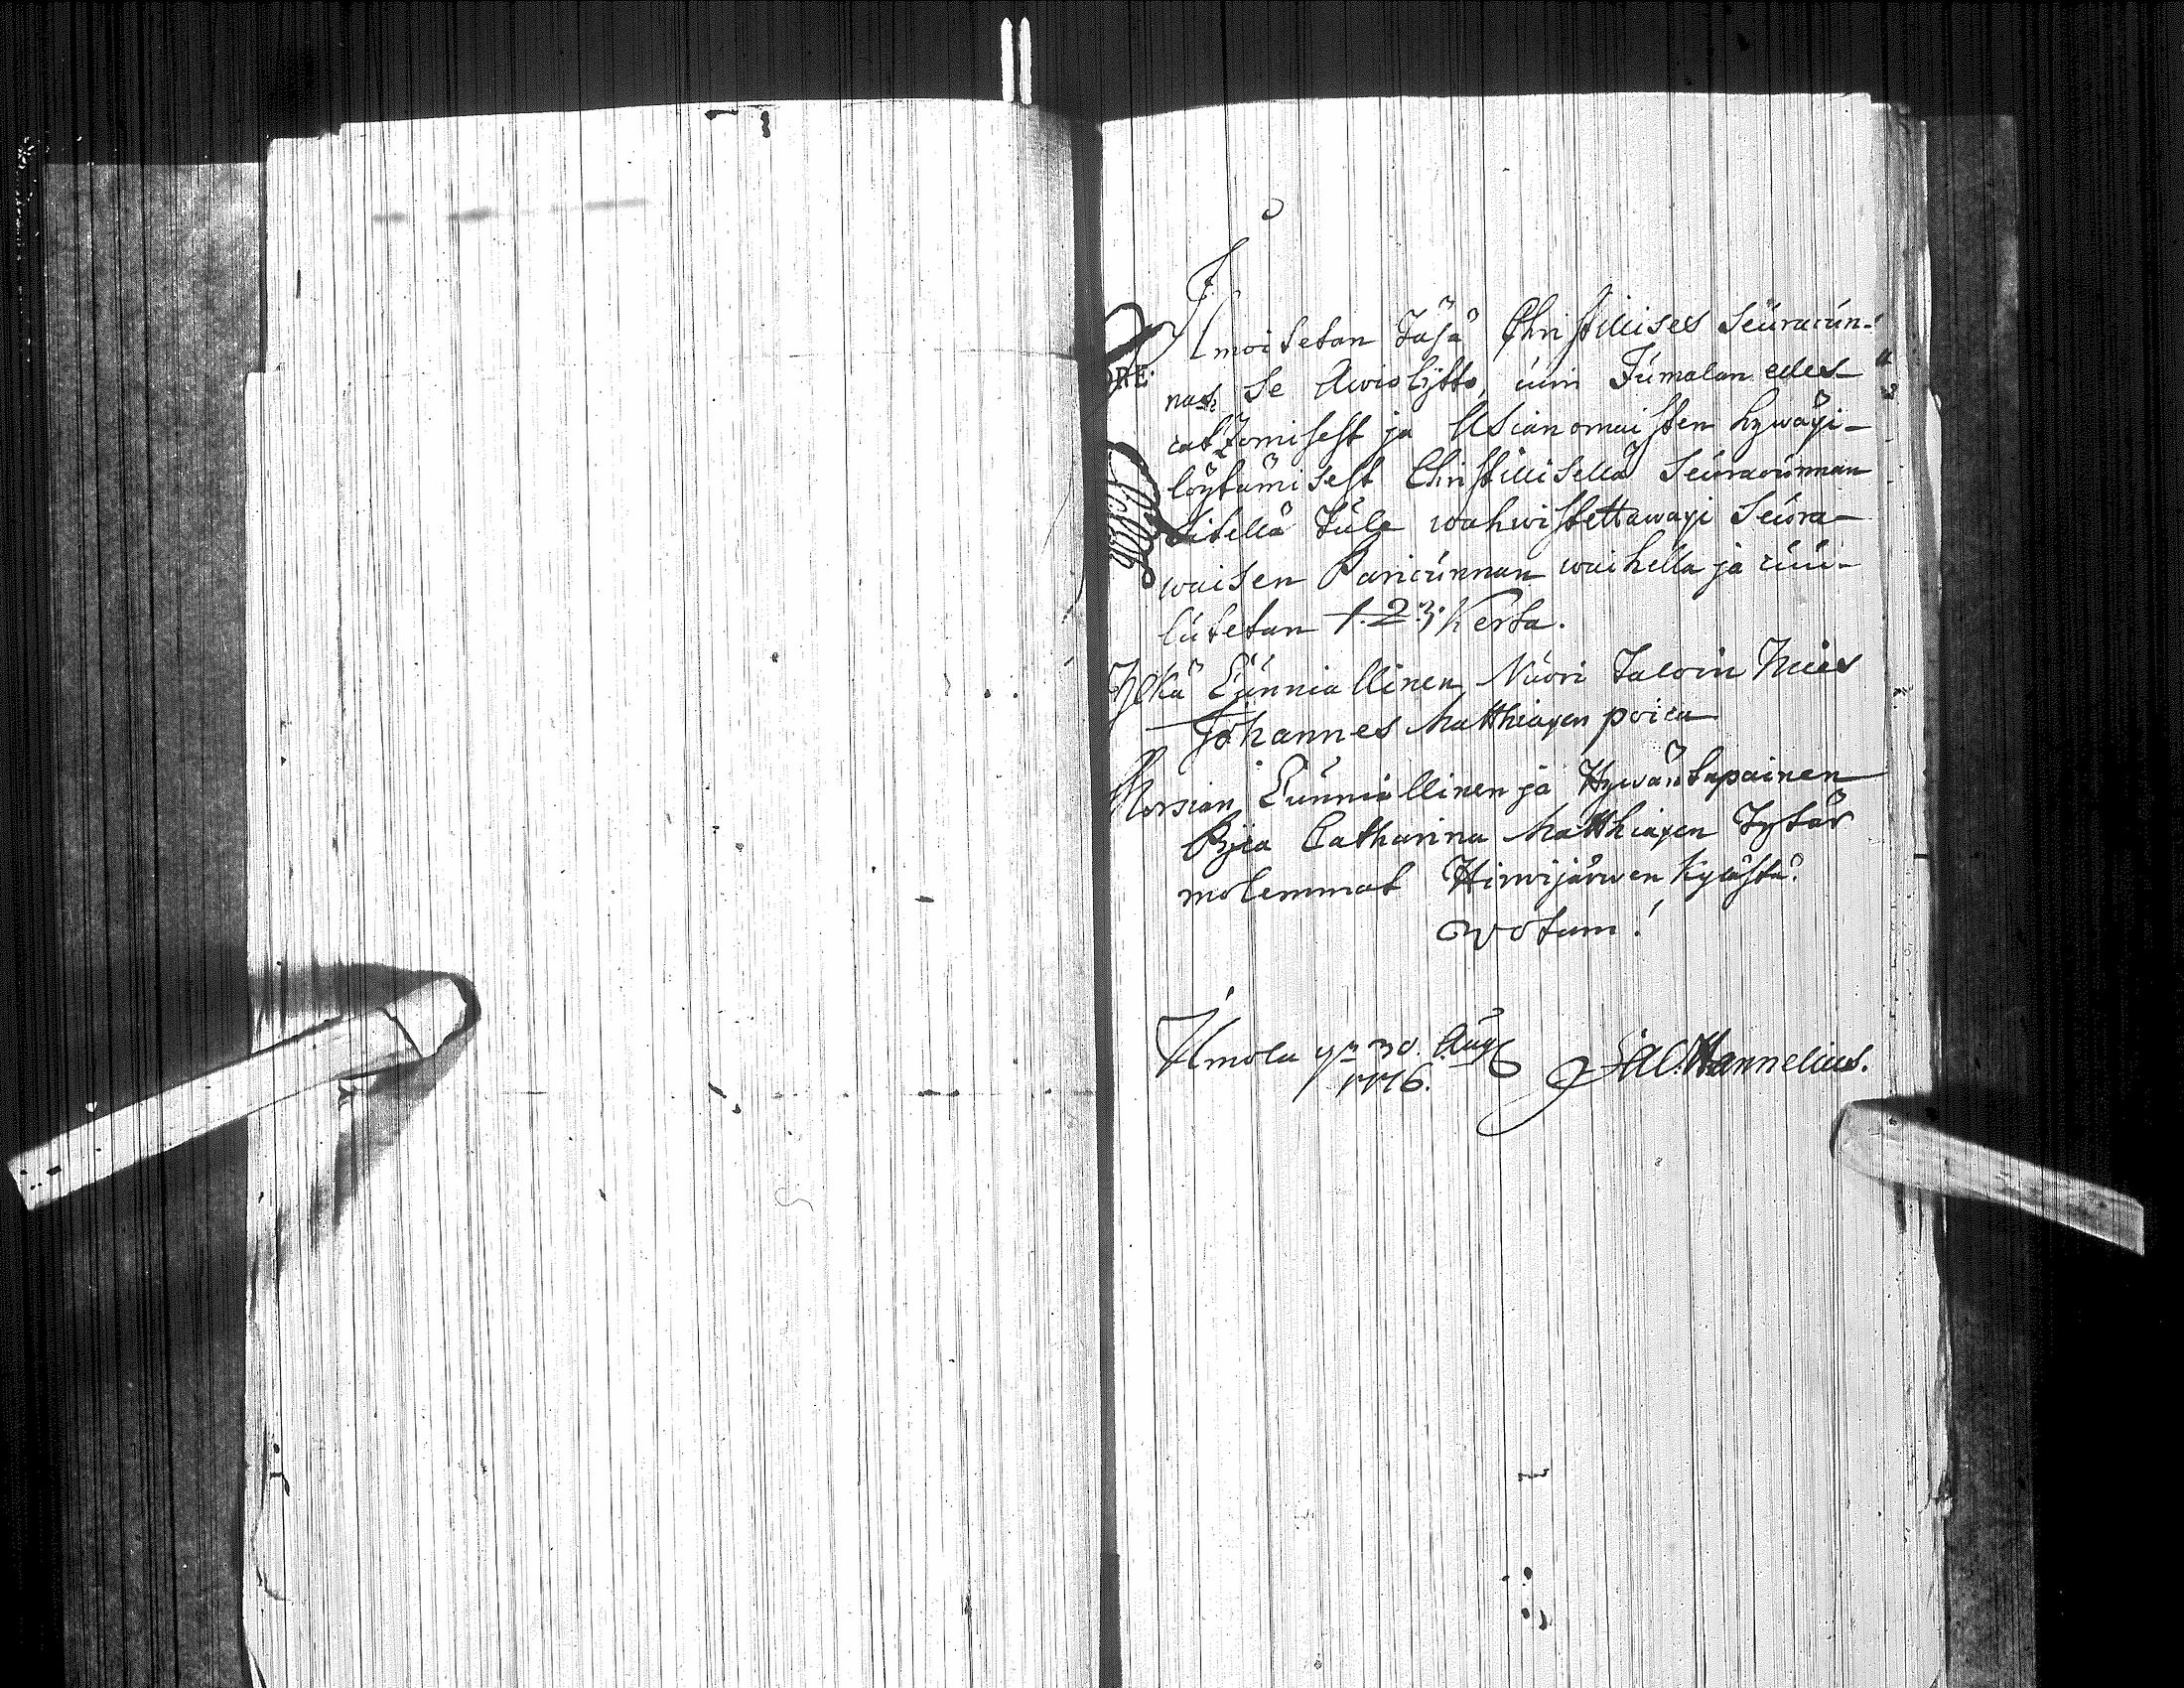 Ilmoitetan Täsä Christillises Seuracun-
nas, Se Awioliitto, cuin Jumalan edes-
catzomisest ja Asianomaisten hywäxi-
löytämisest Christillisellä Seuracunnan
Sitellä Tule wahwistettawaxi Seura-
waisen Paricunnan waihella ja cuu-
lutetan 1. 2 3. Kerta.
Ylkä Cunniallinen Nuori Taloin Mies
Johannes Matthiaxen poica
Morsian Cunniallinen ja Hywäntapainen
Pijca Catharina Matthiaxen Tytär
molemmat Hirwijärwen Kyästä.
votum!
Ilmola 30. Aug
1776.
Hannelius.